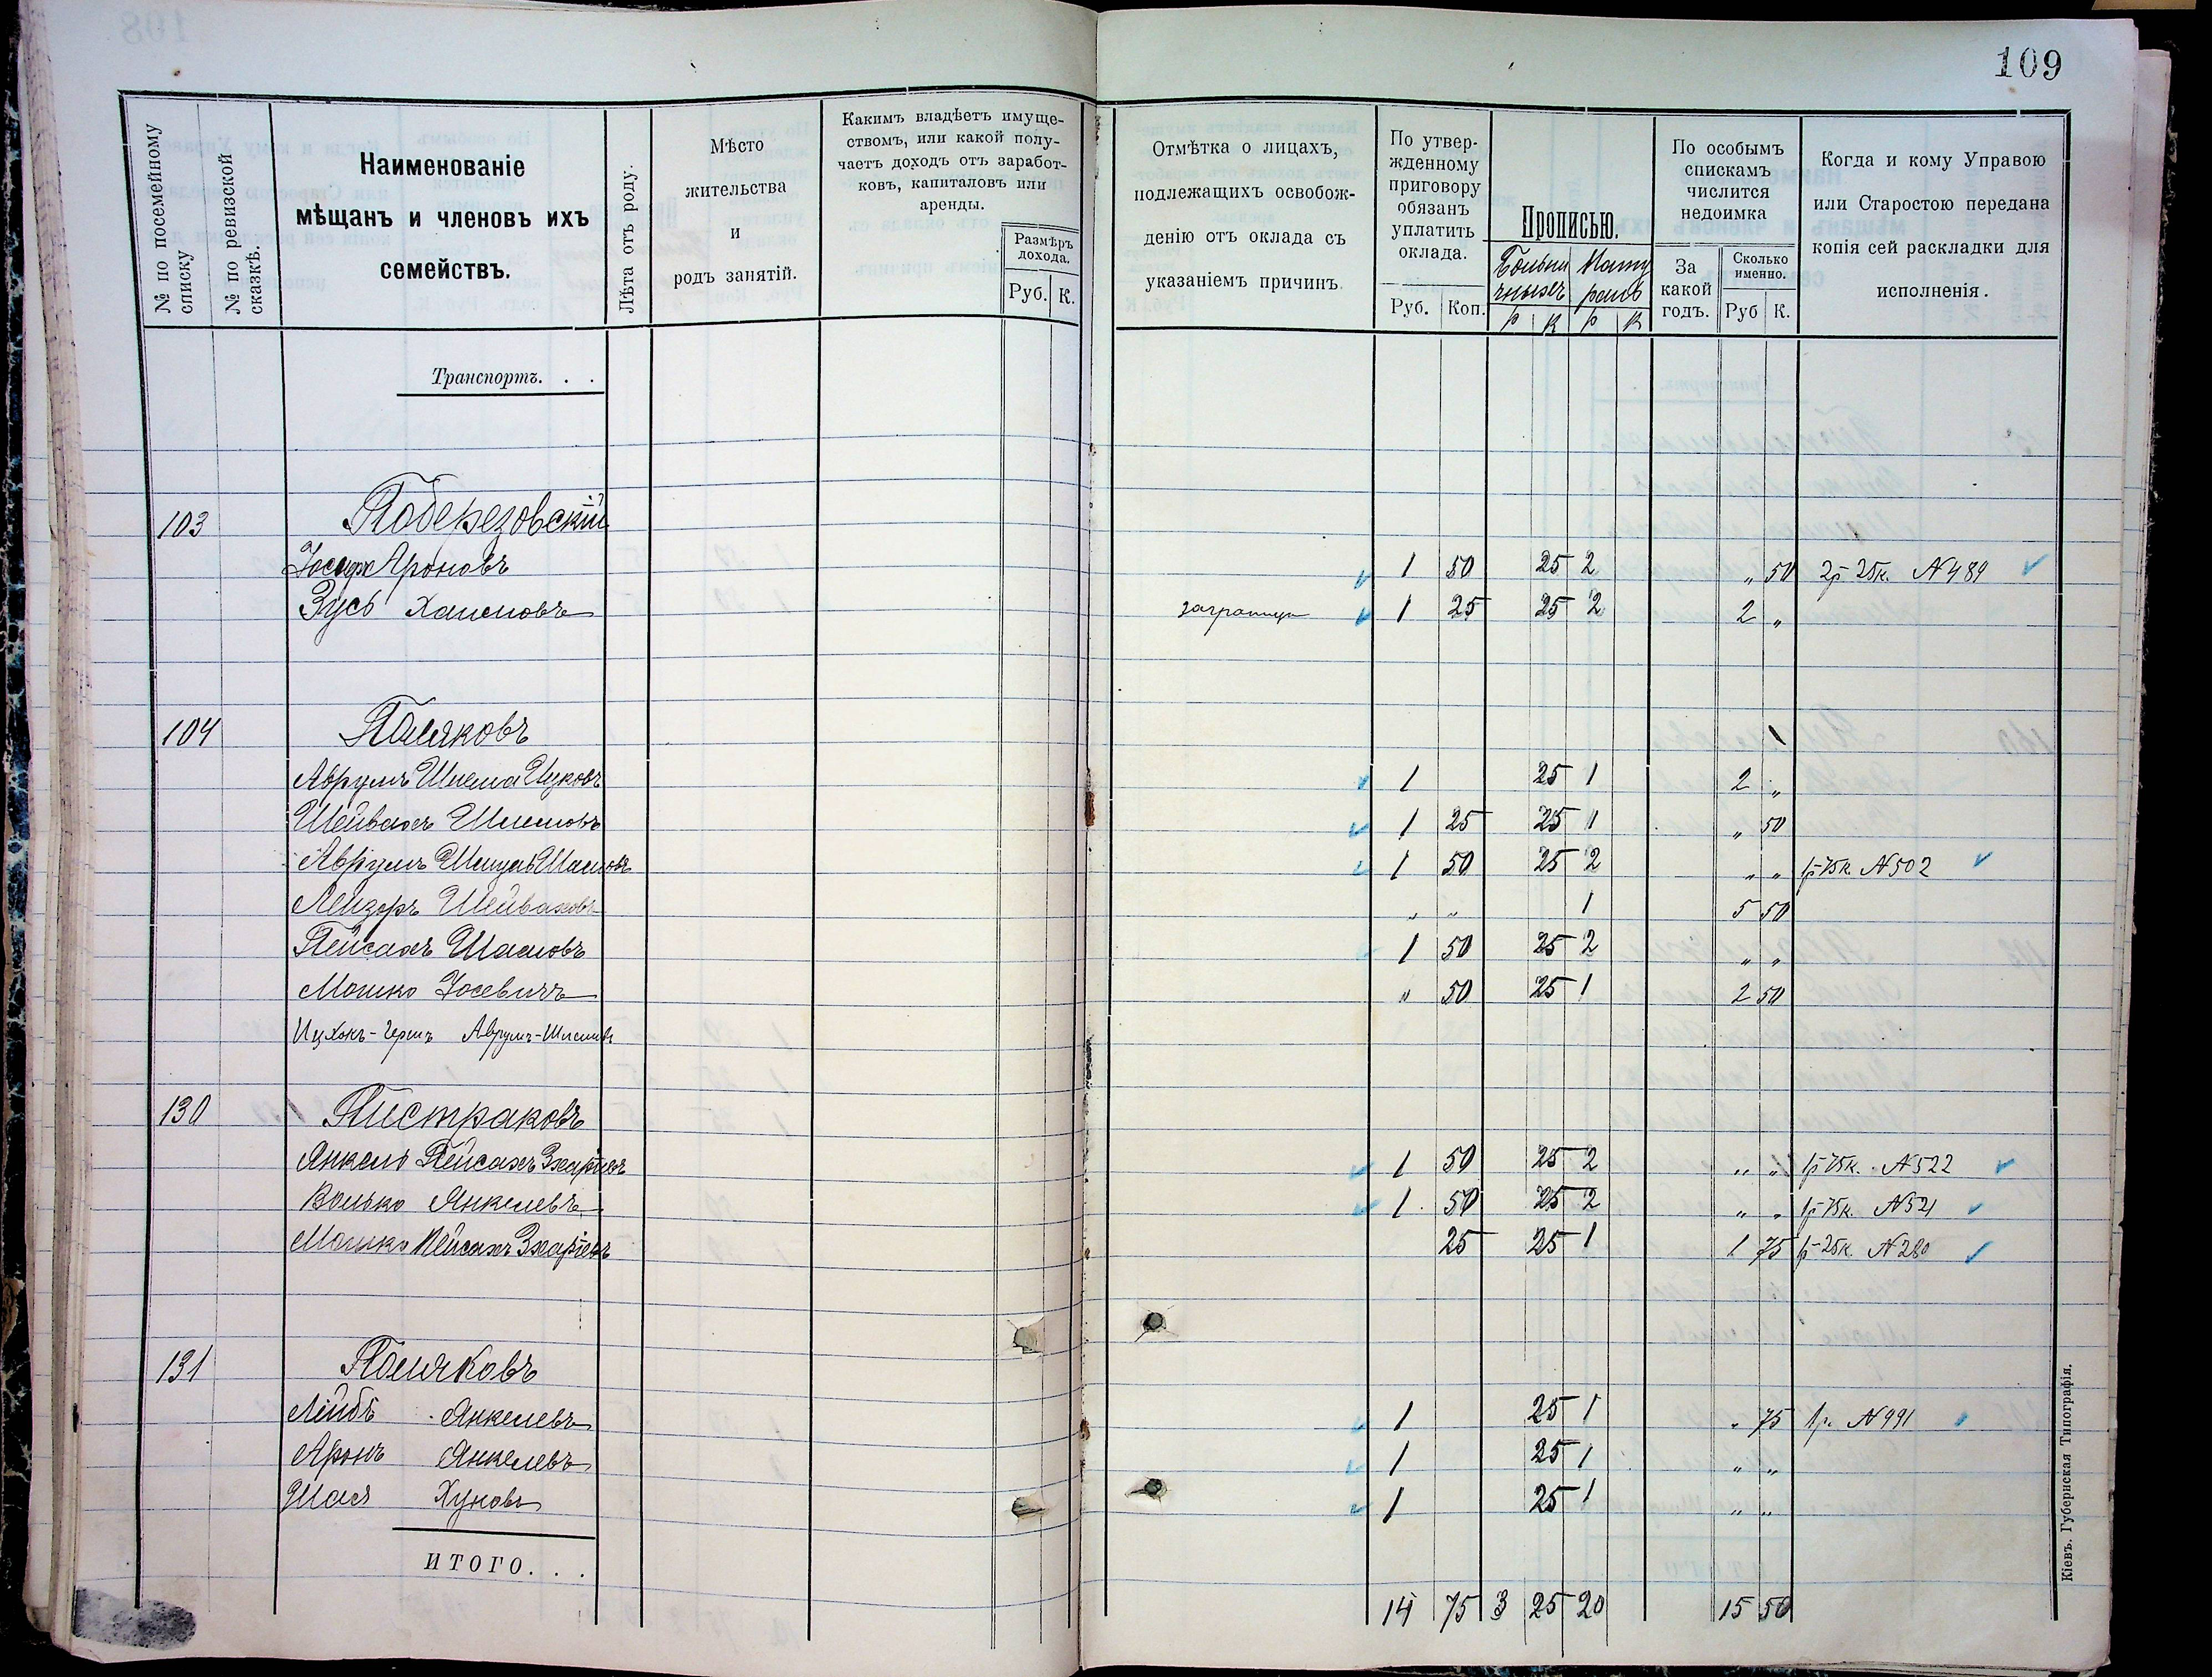 109
№ по посемейному списку
№ по ревизской сказкѣ.
Наименованіе
мѣщанъ и членовъ ихъ
семействъ.
Лѣта отъ роду.
Мѣсто
жительства
и
родъ занятій.
Какимъ владѣетъ имуще-
ствомъ, или какой полу-
чаетъ доходъ отъ заработ-
ковъ, капиталовъ или
аренды.
Размѣръ
дохода.
Руб. К.
Отмѣтка о лицахъ,
подлежащихъ освобож-
денію отъ оклада съ
указаніемъ причинъ.
По утвер-
жденному
приговору
обязанъ
уплатить
оклада.
Руб. Коп.
Прописью.
Больни
чныхъ
Р К Р К
По особымъ
спискамъ
числится
недоимка
За
какой
годъ.
Сколько
именно.
Руб К.
Когда и кому Управою
или Старостою передана
копія сей раскладки для
исполненія.
Транспортъ. . .
103 Поберезовскій
Іосифъ Ароновъ 1 50 25 2 „ 50 2р 25к. №489
Зусь Хаимовъ заграницу 1 25 25 2 2 „
104 Поляковъ
Аврумъ Шлема Ицковъ 1 25 1 2 „
Шейвахъ Шлемовъ 1 25 25 1 „ 50
Аврумъ 1 50 25 2 „ „ 1р 75к. №502
Лейзоръ Шейваховъ „ „ 1 5 50
Пейсахъ 1 50 25 2 „ „
Мошко Іосевичъ „ 50 25 1 2 50
Ицхокъ-Герш Аврумъ-Шлемов
130 Пистраковъ
Янкель Пейсахъ Зхаріевъ 1 50 25 2 „ „ 1р 75к. №522
Волько Янкелевъ 1 50 25 2 „ „ 1р 75к. №521
Мошко Пейсахъ Зхаріевъ 25 25 1 1 75 1р 25к. №280
131 Поляковъ
Лейбъ Янкелевъ 1 25 1 „ 75 1р. №991
Аронъ Янкелевъ 1 25 1 „ „
Шая Хуновъ 1 25 1 „ „
ИТОГО. . .
14 75 3 25 20 15 50
Кіевъ. Губернская Типографія.